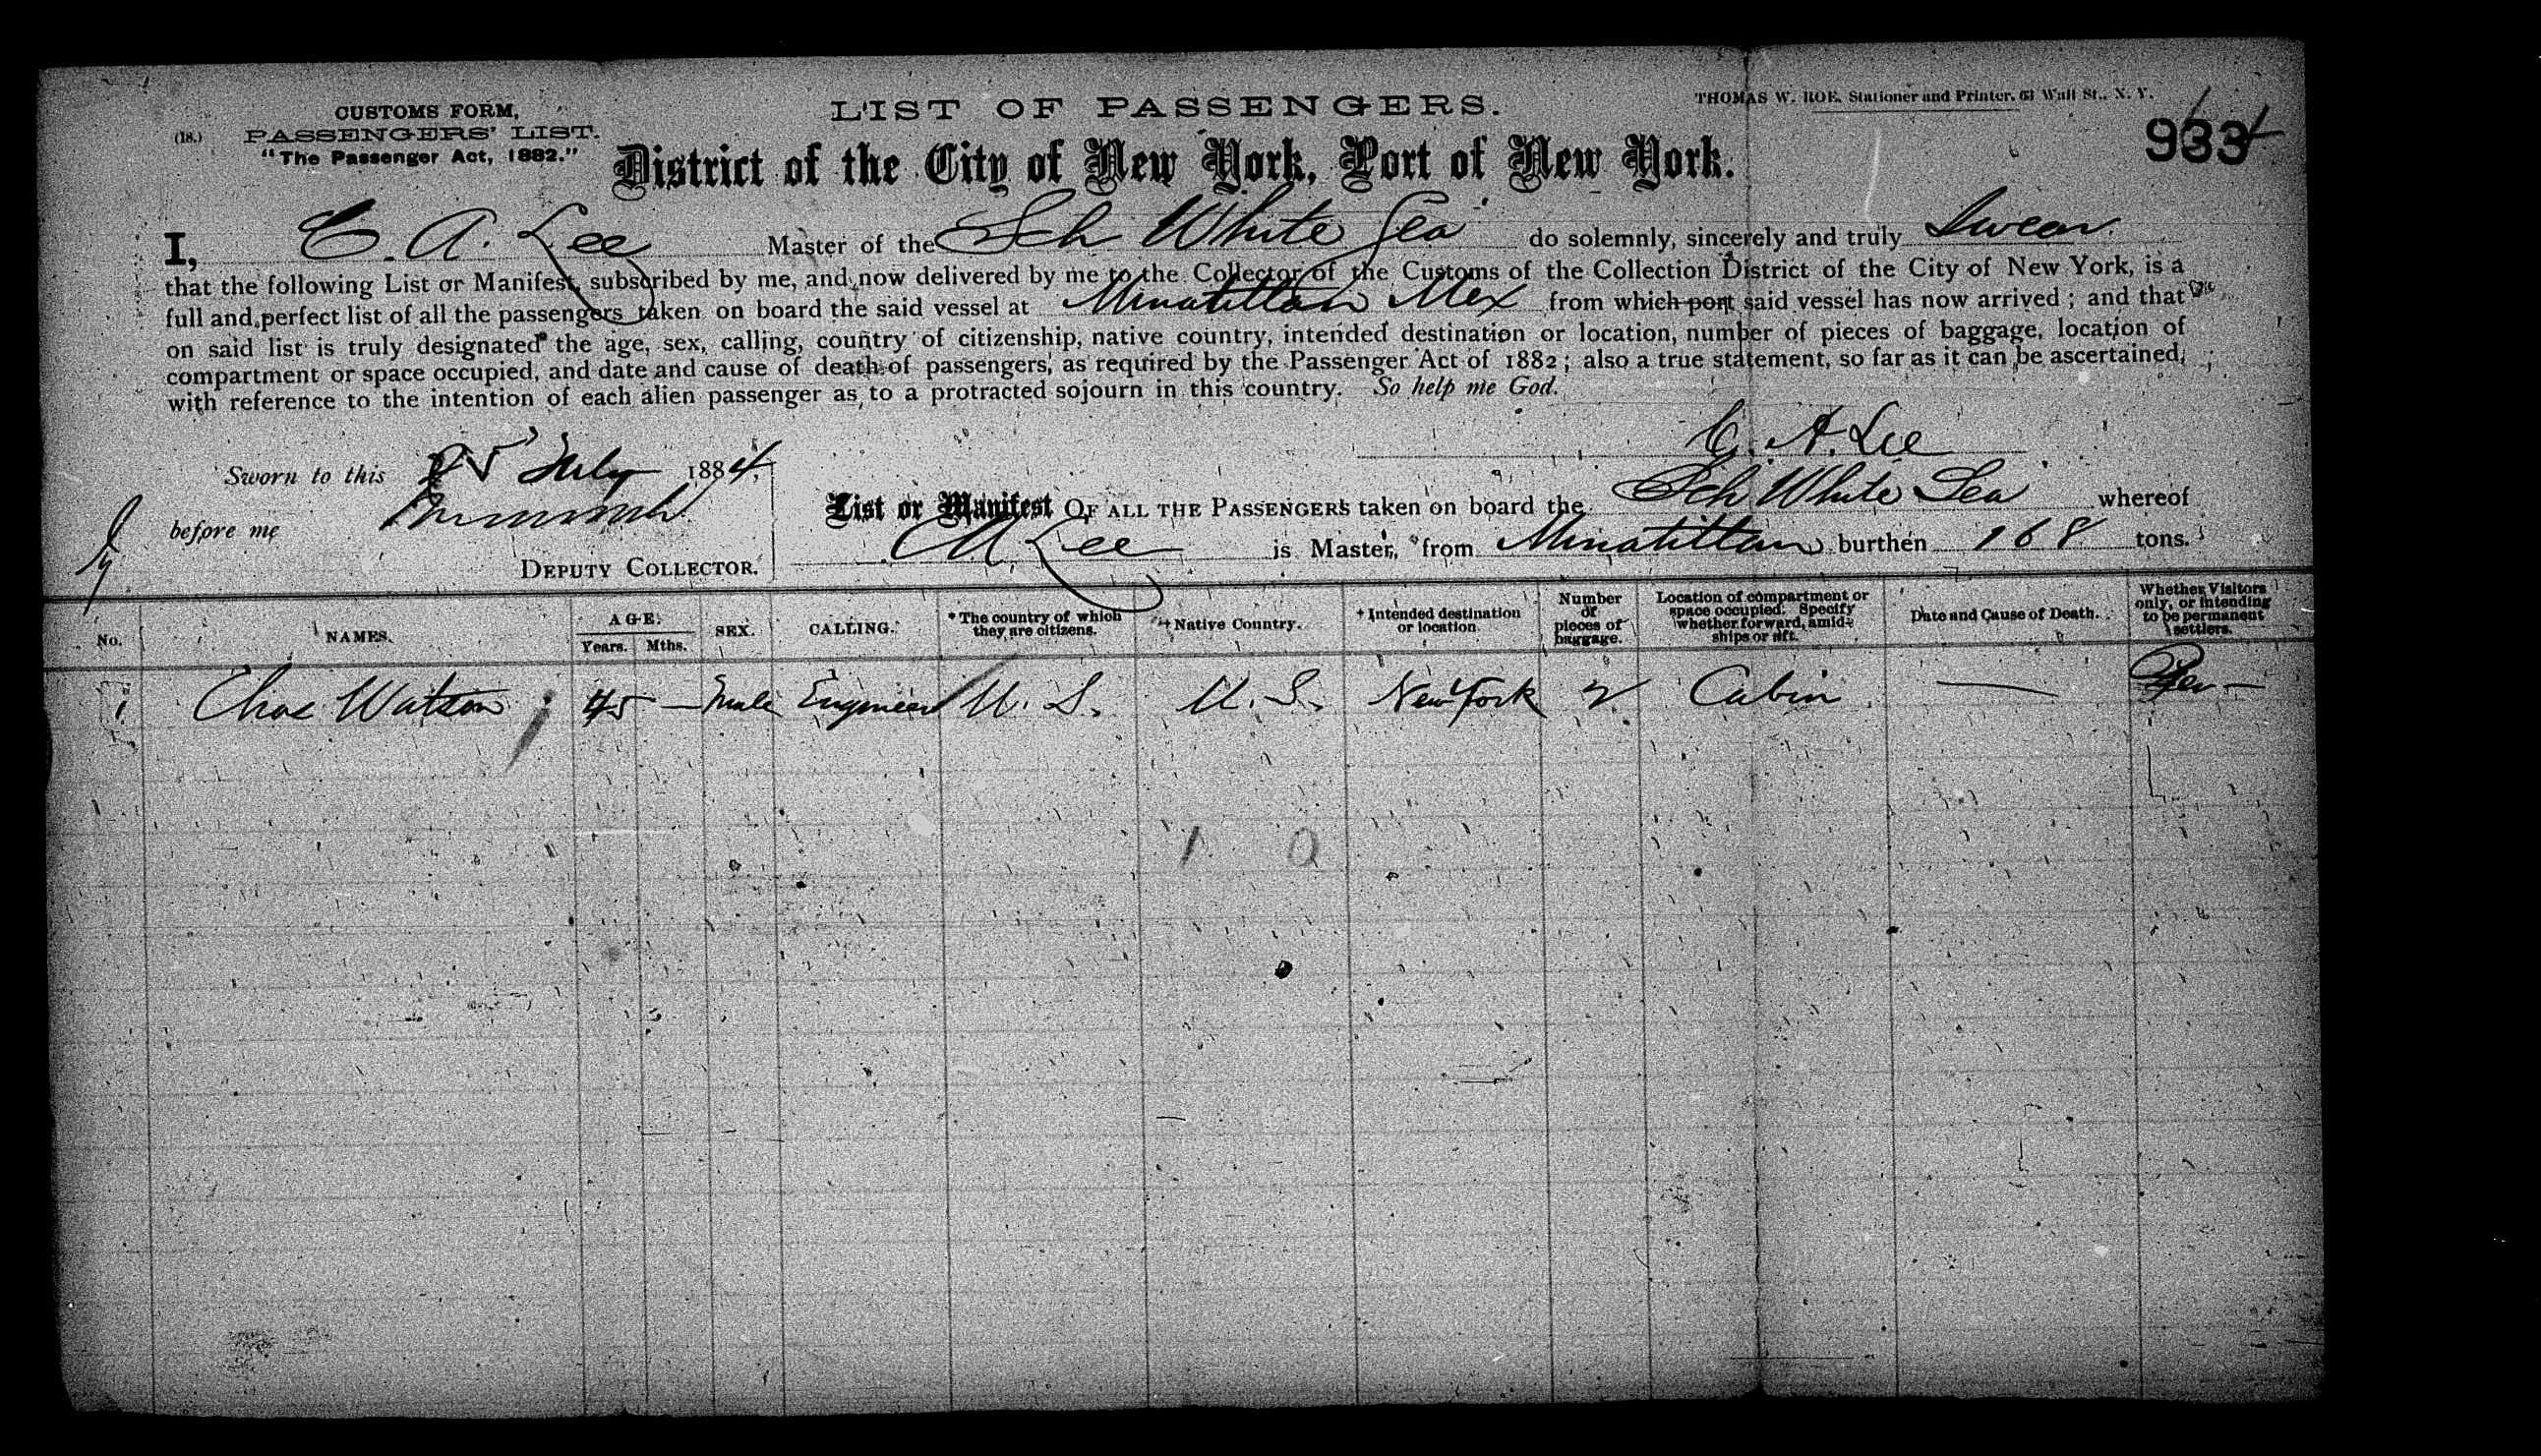 CUSTOMS FORM,
(18.) PASSENGERS' LIST.
"The Passenger Act, 1882."
LIST OF PASSENGERS.
THOMAS W. ROE, Stationer and Printer, 63 Wall St., N. Y.
933
District of the City of New York, Port of New York.
I, C. A. Lee Master of the Sch White Sea do solemnly, sincerely and truly Swear
that the following List or Manifest, subscribed by me, and now delivered by me to the Collector of the Customs of the Collection District of the City of New York, is a
full and perfect list of all the passengers taken on board the said vessel at Minatitlan Mex from which port said vessel has now arrived; and that
on said list is truly designated the age, sex, calling, country of citizenship, native country, intended destination or location, number of pieces of baggage, location of
compartment or space occupied, and date and cause of death of passengers, as required by the Passenger Act of 1882; also a true statement, so far as it can be ascertained,
with reference to the intention of each alien passenger as to a protracted sojourn in this country. So help me God.
C. A. Lee
Sworn to this 25 July 1884,
before me
DEPUTY COLLECTOR.
List or Manifest OF ALL THE PASSENGERS taken on board the Sch White Sea whereof
C A Lee is Master, from Minatitlan burthen 168 tons.
No. NAMES. AGE. Years. Mths. SEX. CALLING. * The country of which they are citizens. † Native Country. † Intended destination or location. Number of pieces of baggage. Location of compartment or space occupied. Specify whether forward, amidships or aft. Date and Cause of Death. Whether Visitors only, or intending to be permanent settlers.
1 Chas Watson 45 — Male Engineer U. S. U. S. New York 2 Cabin —
1 0